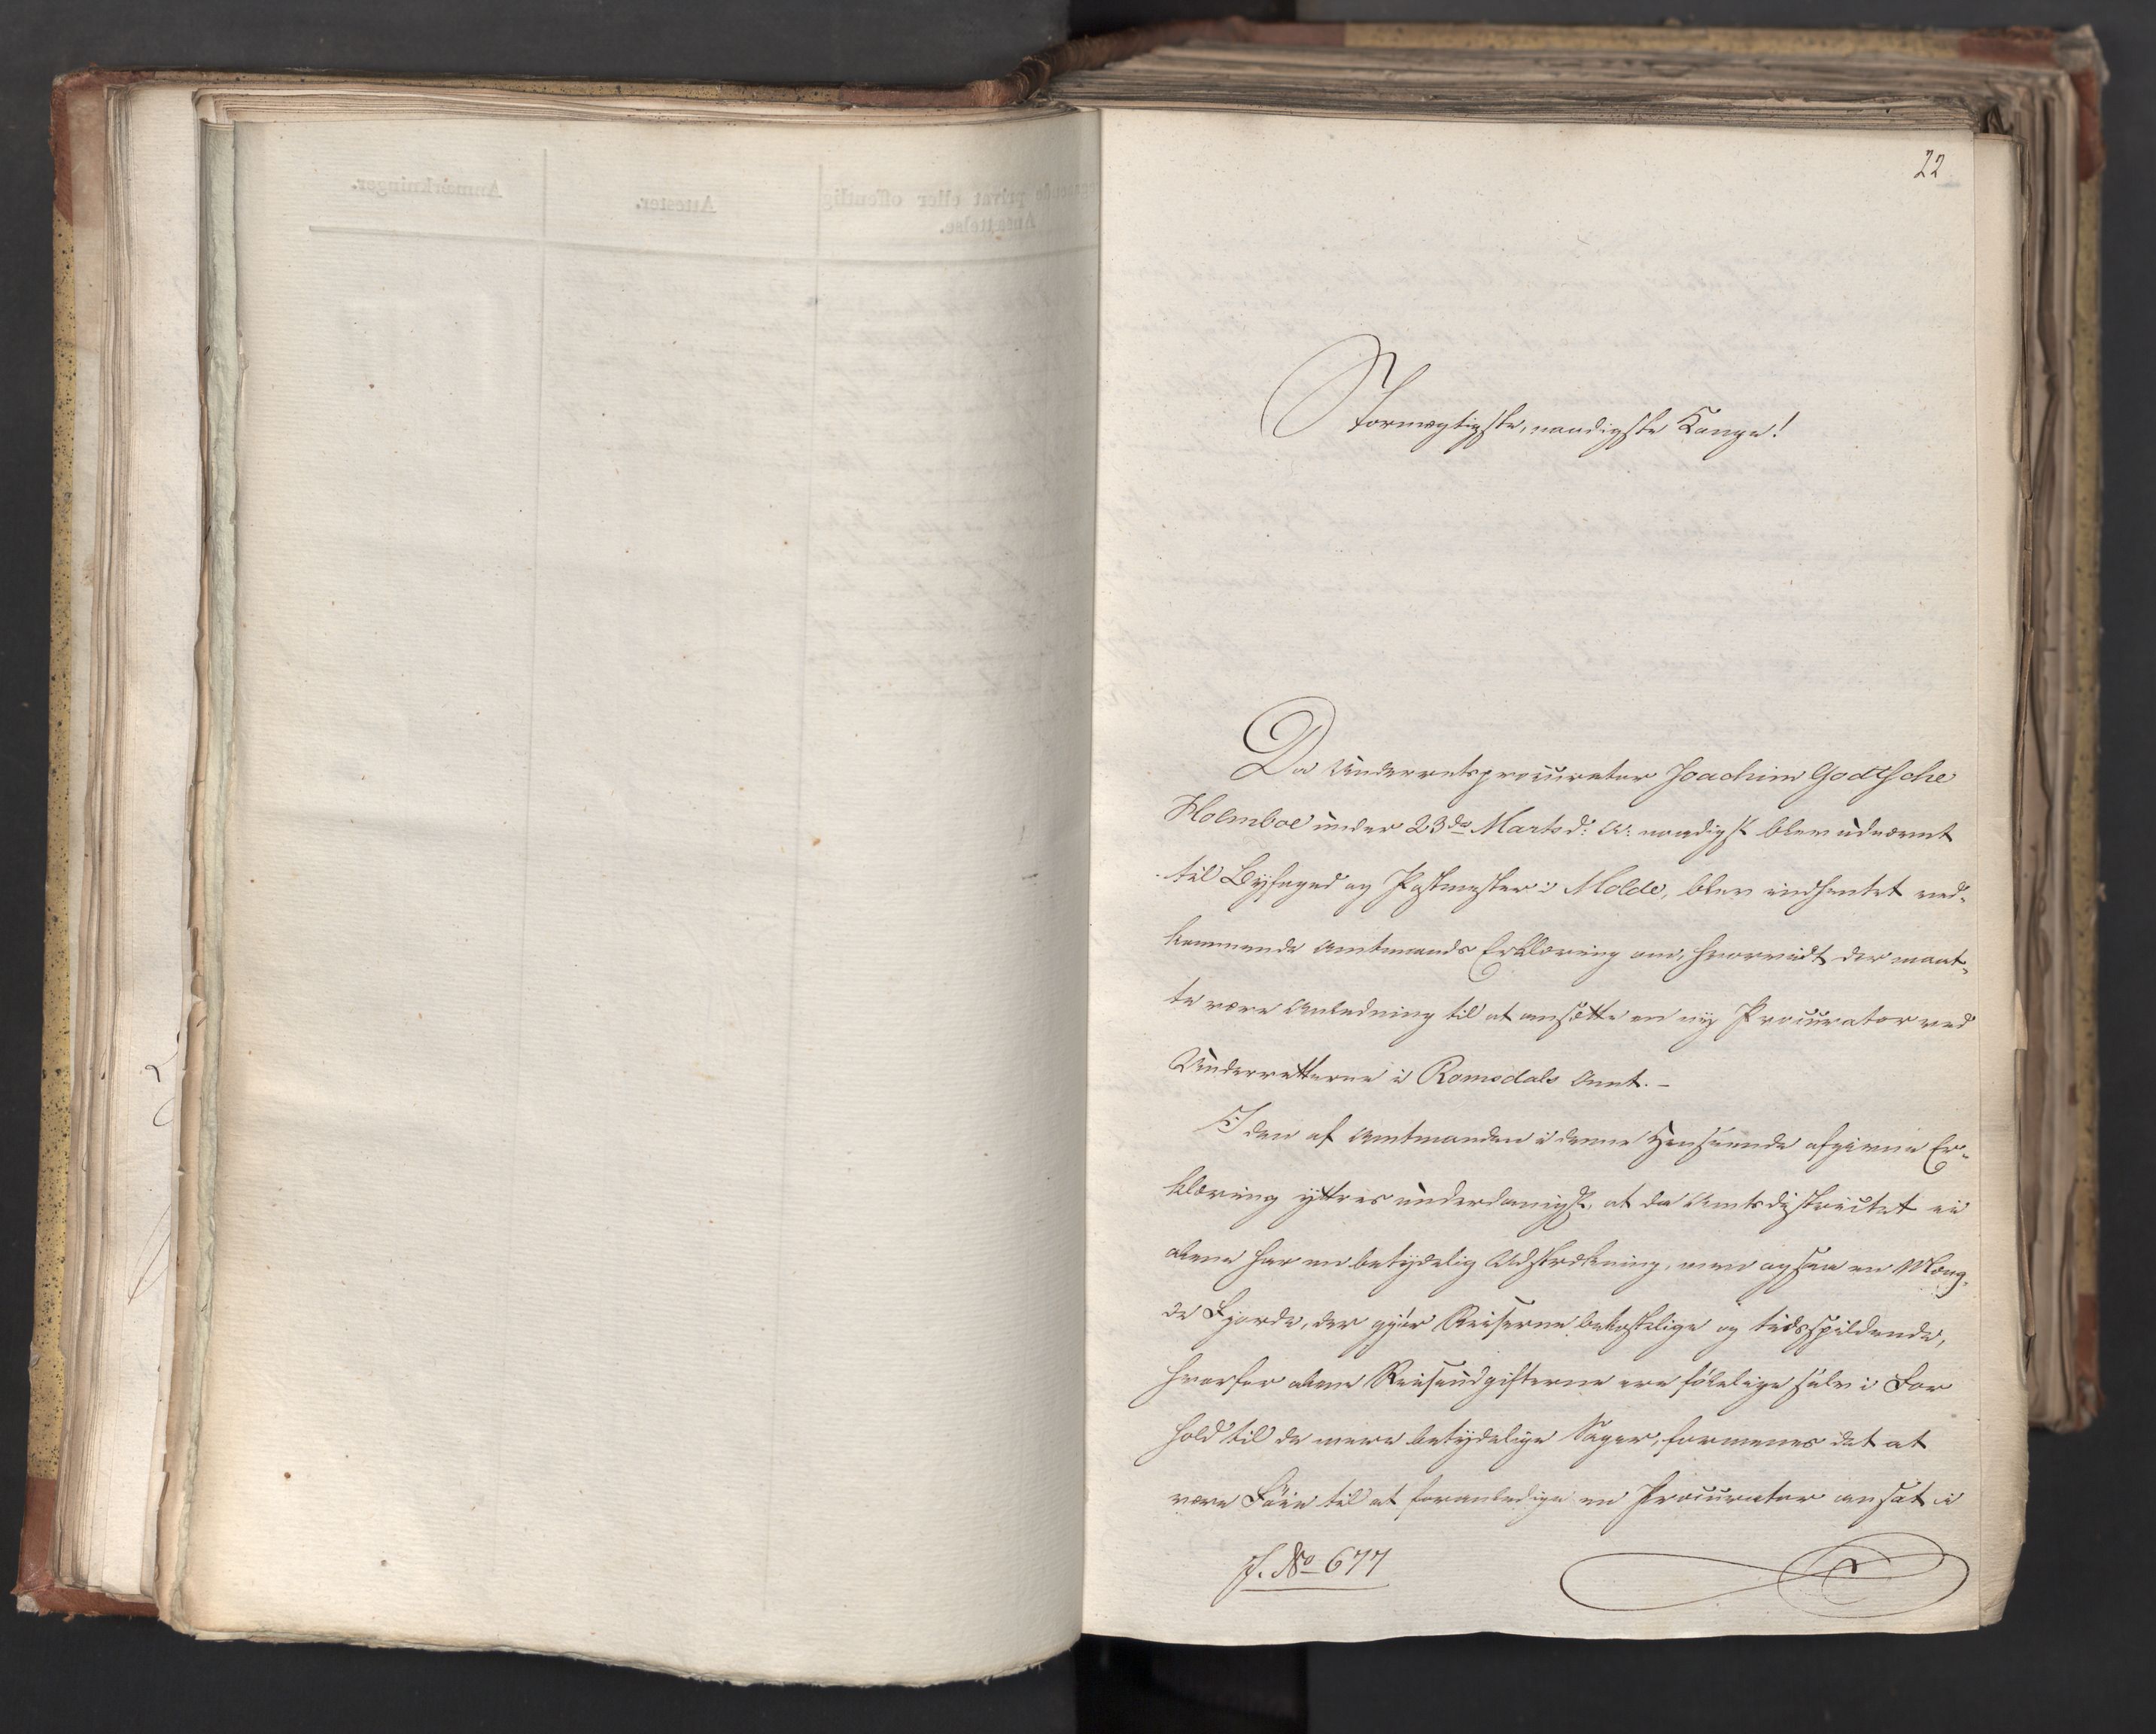 22
Stormægtigste, naadigste Konge!
Da Underretsprocurator Joachim Godtsche
Holmboe under 23de Marts d: A: naadigst blev udnævnt
til Byfoged og Postmester i Molde, blev indhentet ved-
kommende Amtmands Erklæring om, hvorvidt der maat-
te være Anledning til at ansætte en ny Procurator ved
Underretterne i Romsdals Amt.-
I den af Amtmanden i denne Henseende afgivne Er-
klæring yttres underdanigst, at da Amtsdistrictet ei
alene har en betydelig Udstrækning, men ogsaa en Mæng-
de Fjorde, der gjør Reiserne bekostelige og tidsspildende,
hvorfor alene Reiseudgifterne ere følelige selv i For
hold til de mere betydelige Sager, formenes det at
være Föie til at foranledige en Procurator ansat i
J. No 677
Anmærkninger.
Attester.
privat eller offentlig
Ansættelse.